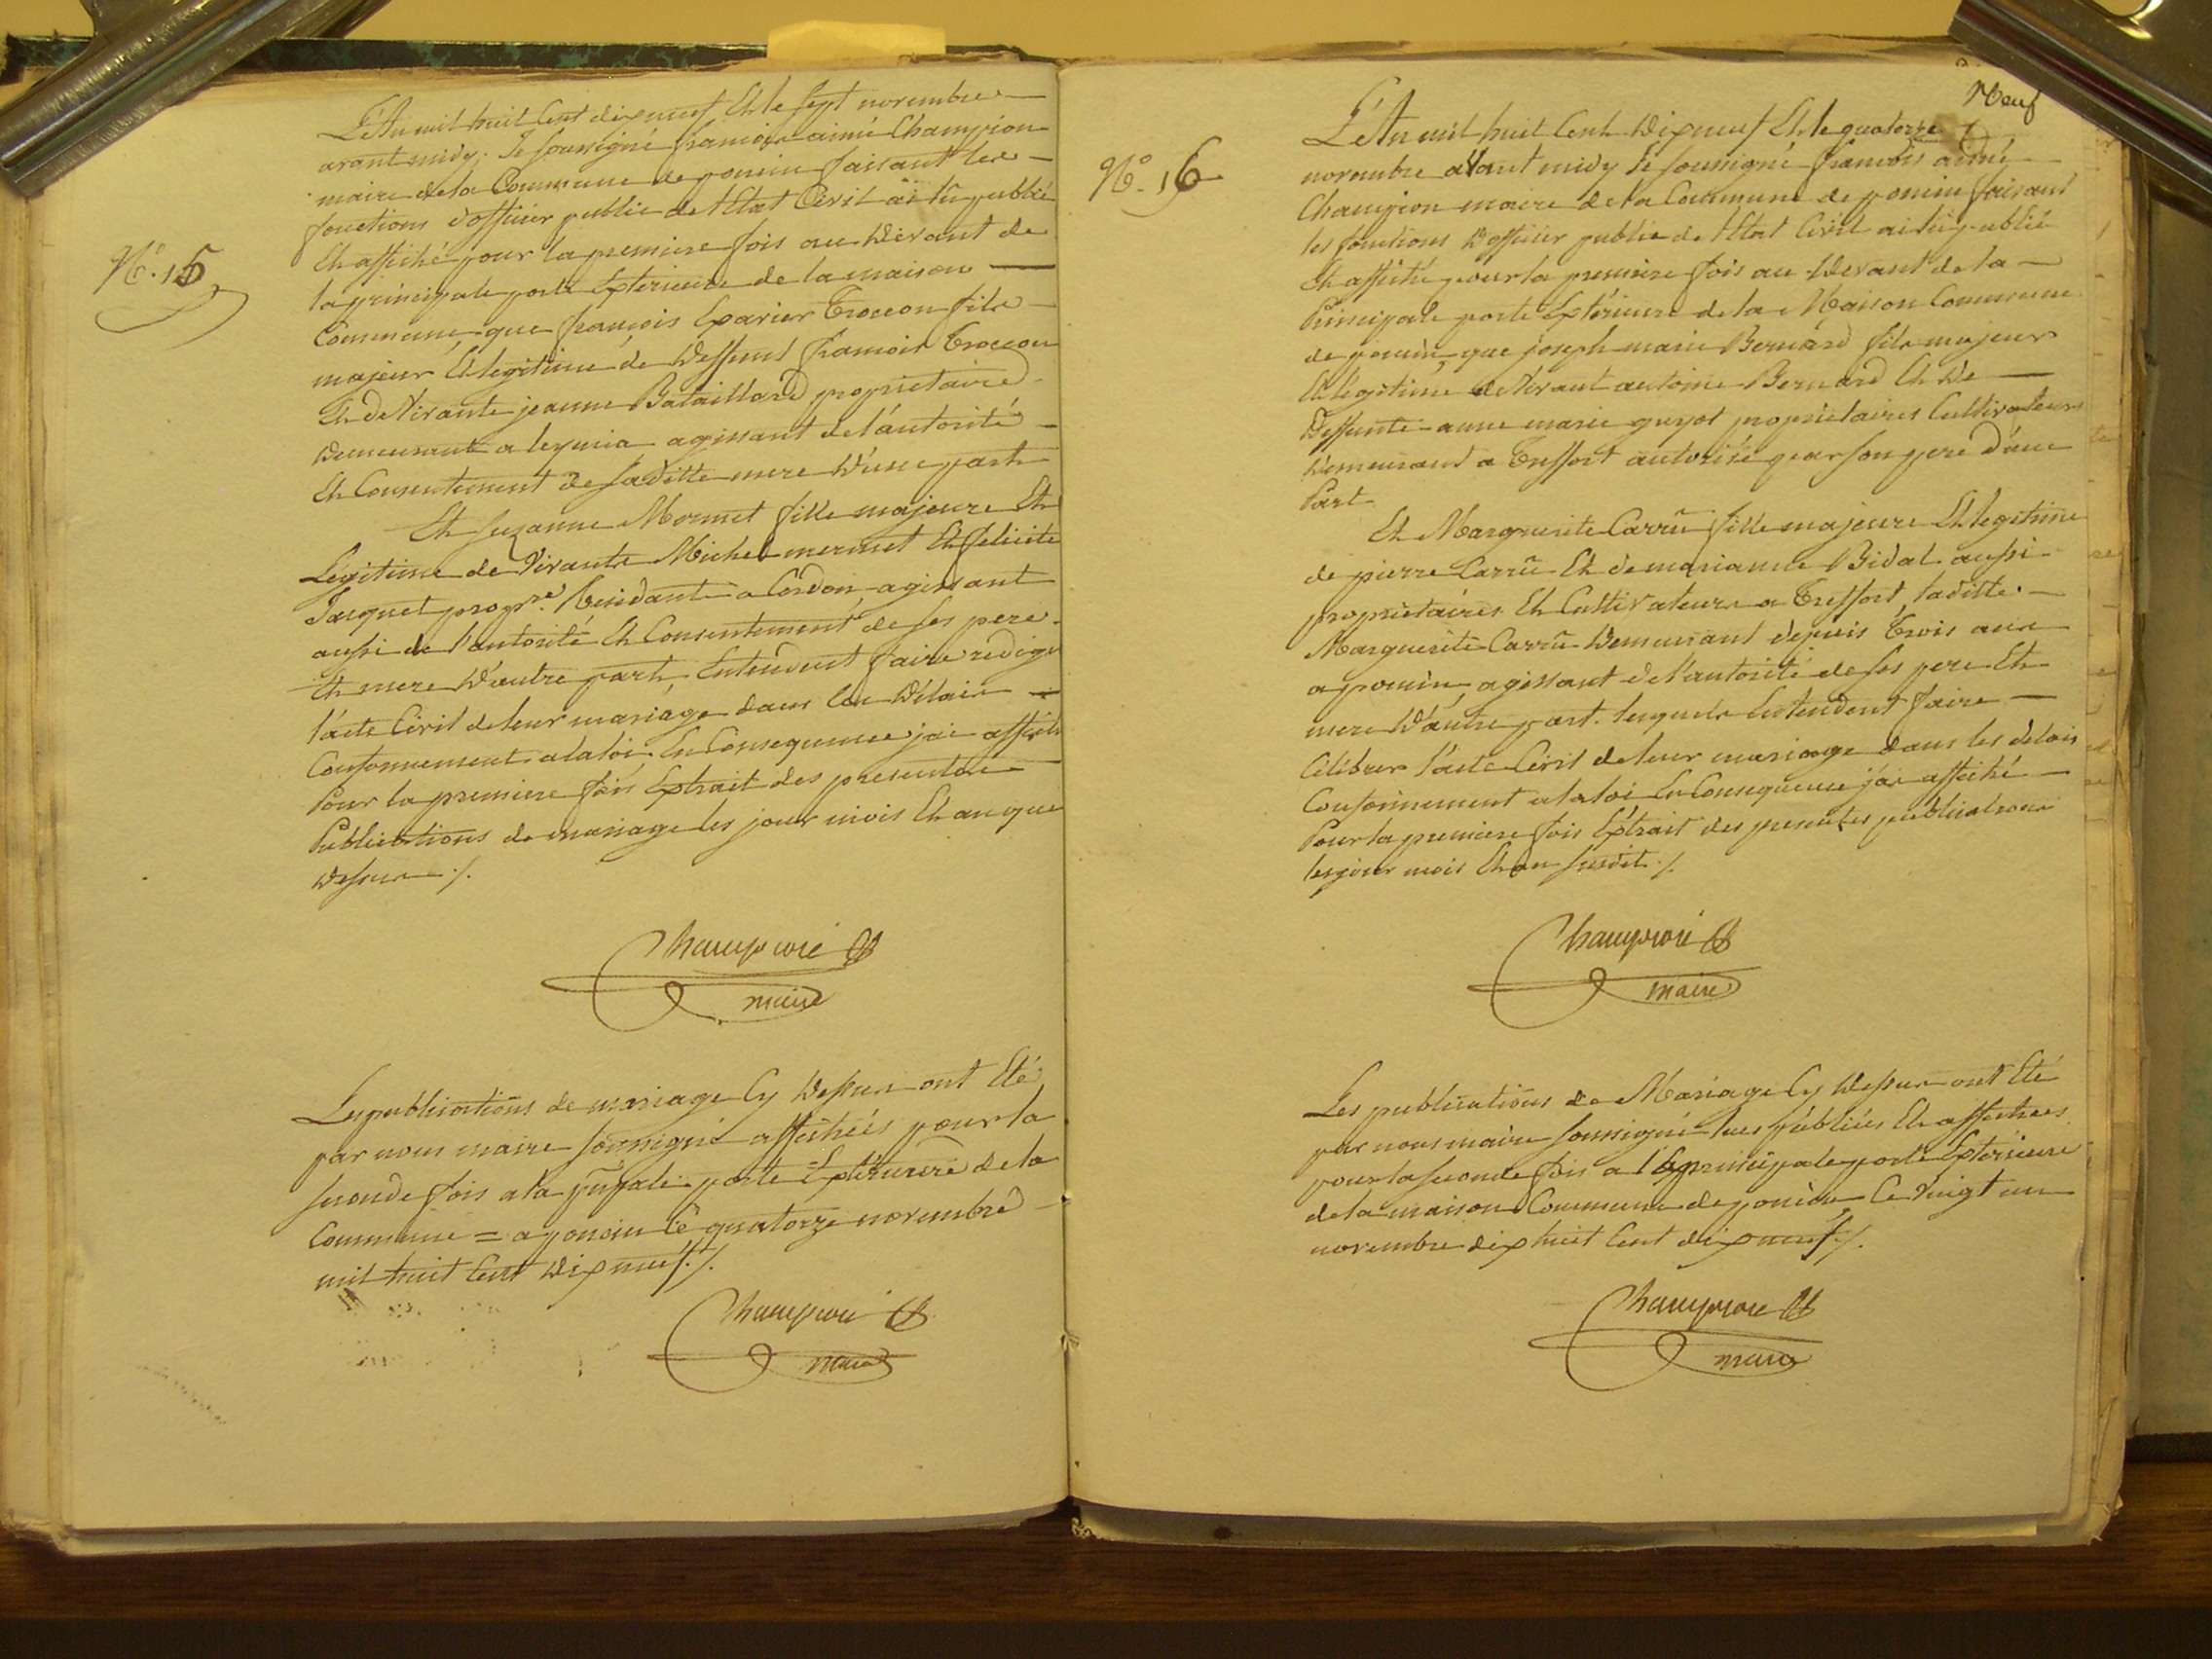 L'An mil huit Cent dix neuf Et le sept novembre
avant midy. Je soussigné françois aimé Champion
maire de la Commune de poncin faisant les
fonctions d'officier public de l'Etat Civil ai lû publié
Et affiché pour la premiere fois au Devant de
la principale porte Exterieure de la maison
Commune, que françois Xavier Troccon fils
majeur Et legitime de Deffunt francois Troccon
Et de Vivante jeanne Bataillard proprietaire
Demeurant a leymia agissant de l'autorité
Et Consentement de Saditte mere D'une part
Et Suzanne Mermet fille majeure Et
Légitime de Vivants Michel mermet Et felicité
Jaquet propre. Residants a Cordon agissant
aussi de l'autorité Et Consentement de ses pere
Et mere D'autre part, Entendent faire rediger
l'acte Civil de leur mariage dans les Délais
Conformement a la loi, En Consequence j'ai affiché
Pour la premiere fois Extrait des presentes
Publications de mariage les jour mois Et an que
Dessus ./.
Champion
maire
Les publications de mariage Cy Dessus ont Eté
par nous maire soussigné affichées pour la
seconde fois a la pñpale porte Exterieure de la
Commune = a poncin le quatorze novembre
mil huit Cent Dix neuf ./.
Champion
maire
N°. 15
Neuf
L'An mil huit Cent Dix neuf Et le quatorze
novembre avant midy Je soussigné francois aimé
Champion maire de la Commune de poncin faisant
les fonctions D'officier public de l'Etat Civil ai lû publié
Et affiché pour la premiere fois au Devant de la
Principale porte Extérieure de la Maison Commune
de poncin, que joseph marie Bernard fils majeur
Et légitime de Vivant antoine Bernard Et De
Deffunte anne marie guyot proprietaires Cultivateurs
Demeurant a Treffort autorisé par son pere D'une
Part
Et Marguerite Carrû fille majeure Et legitime
de pierre Carrû Et de marianne Bidal aussi
proprietaires Et Cultivateurs a Treffort, laditte
Marguerite Carrû Demeurant depuis Trois ans
a poncin, agissant de l'autorité de ses pere Et
mere D'autre part. lesquels Entendent faire
Célébrer l'acte Civil de leur mariage dans les délais
Conformement a la loi En Consequence j'ai affiché
Pour la premiere fois Extrait des presentes publications
les jour mois Et an susdit ./.
Champion
maire
Les publications de Mariage Cy Dessus ont Eté
par nous maire soussigné lues publiées Et affichees
pour la seconde fois a la principale porte Exterieure
de la maison Commune de poncin Ce Vingt un
novembre dix huit Cent dix neuf ./.
Champion
maire
N°. 16